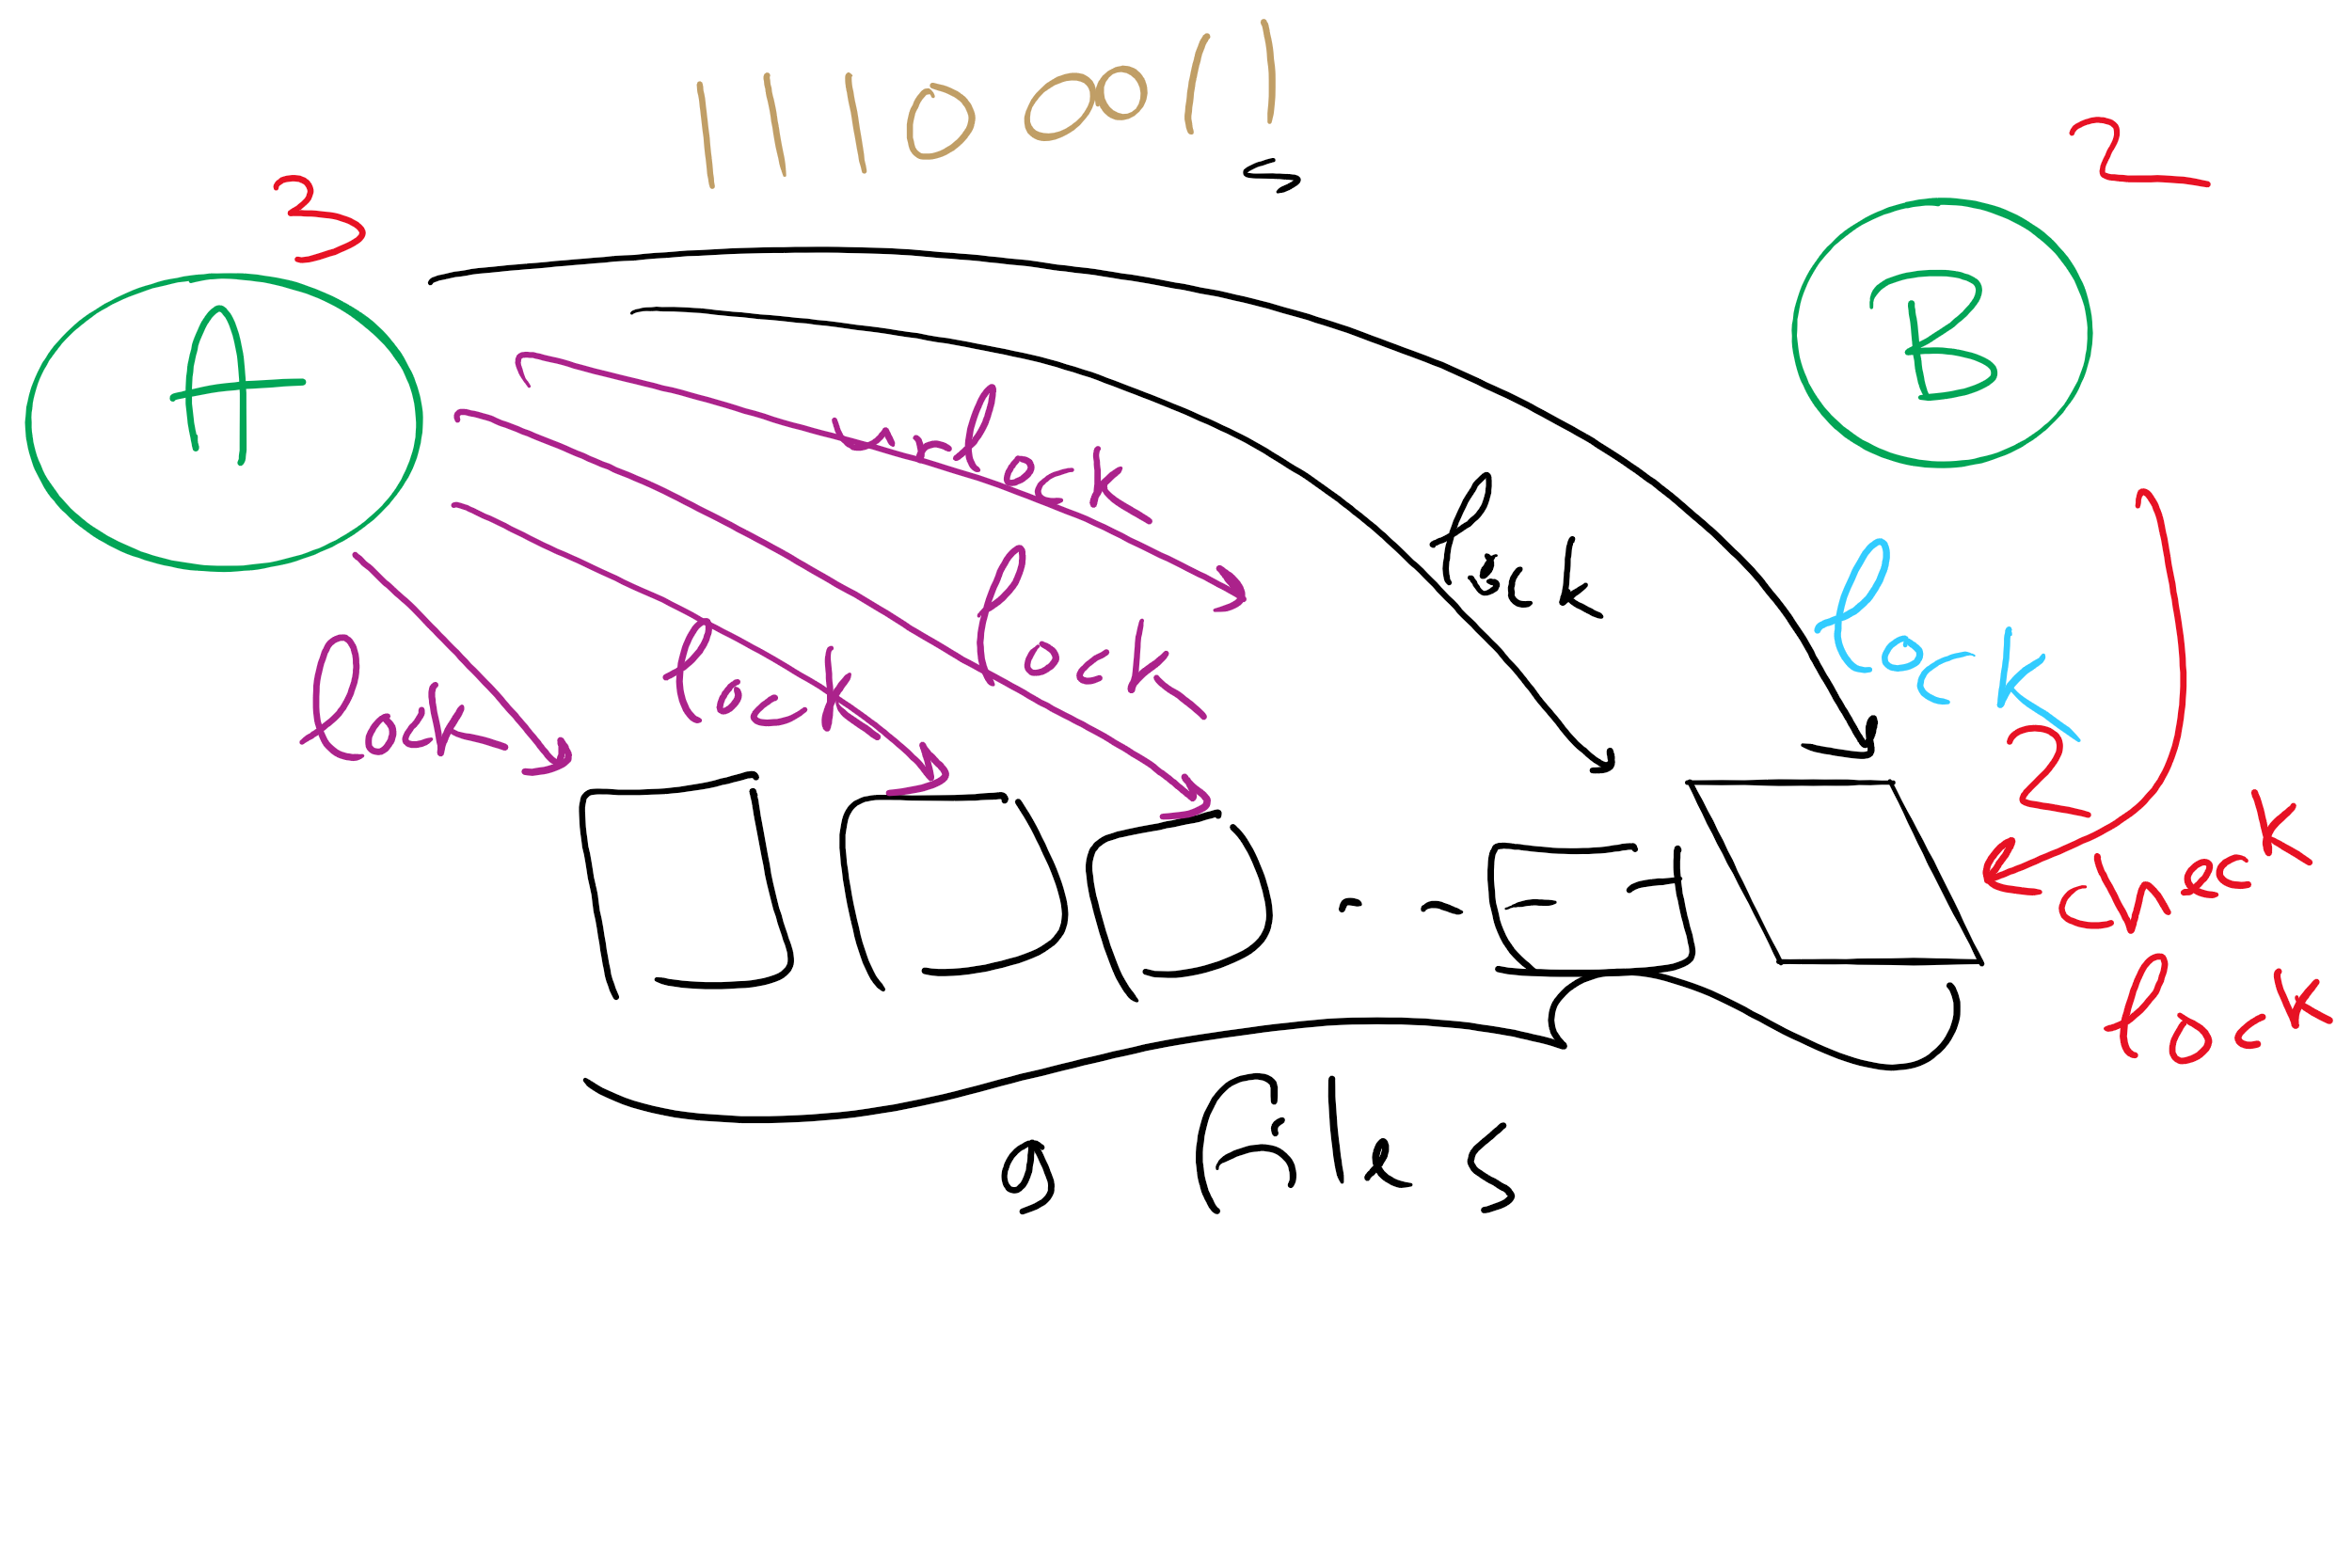 11100011
s
3
2
A
B
unlock
lock
lock
lock
lock
lock
2
check
lock
9 files